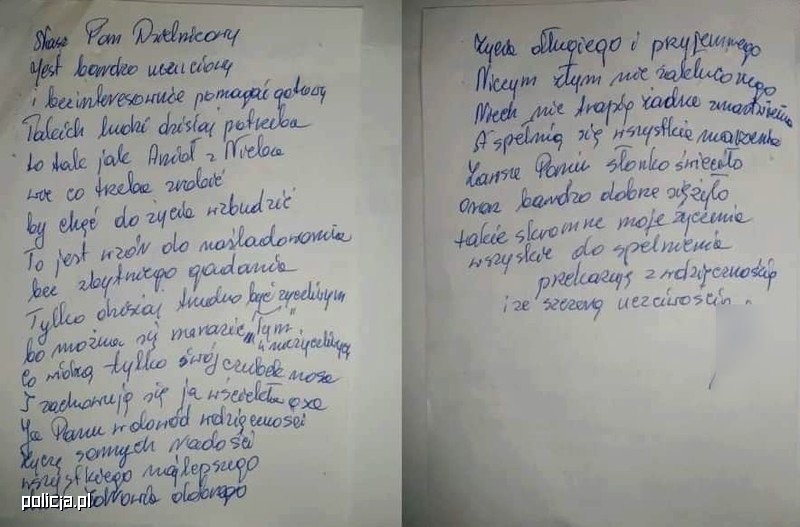 Nasz Pan Dzielnicowy
Jest bardzo uczciwy
i bezinteresownie pomagać gotowy
Takich ludzi dzisiaj potrzeba
to tak jak Anioł z Nieba
wie co trzeba zrobić
by chęć do życia wzbudzić
To jest wzór do naśladowania
bez zbytniego gadania
Tylko dzisiaj trudno być życzliwym
bo można się narazić "tym"
nieżyczliwym
Co widzą tylko swój czubek nosa
I zachowują się ja wściekła osa
Ja Panu w dowód wdzięczności
życzę samych radości
wszystkiego najlepszego
zdrowia dobrego
policja.pl
Życia długiego i przyjemnego
Niczym złym nie zakłuconego
Niech nie trapią żadne zmartwienia
A spełnią się wszystkie marzenia
Zawsze Panu słonko świeciło
oraz bardzo dobrze się żyło
takie skromne moje życzenia
wszyskie do spełnienia
przekazuję z wdzięcznością
i ze szczerą uczciwością